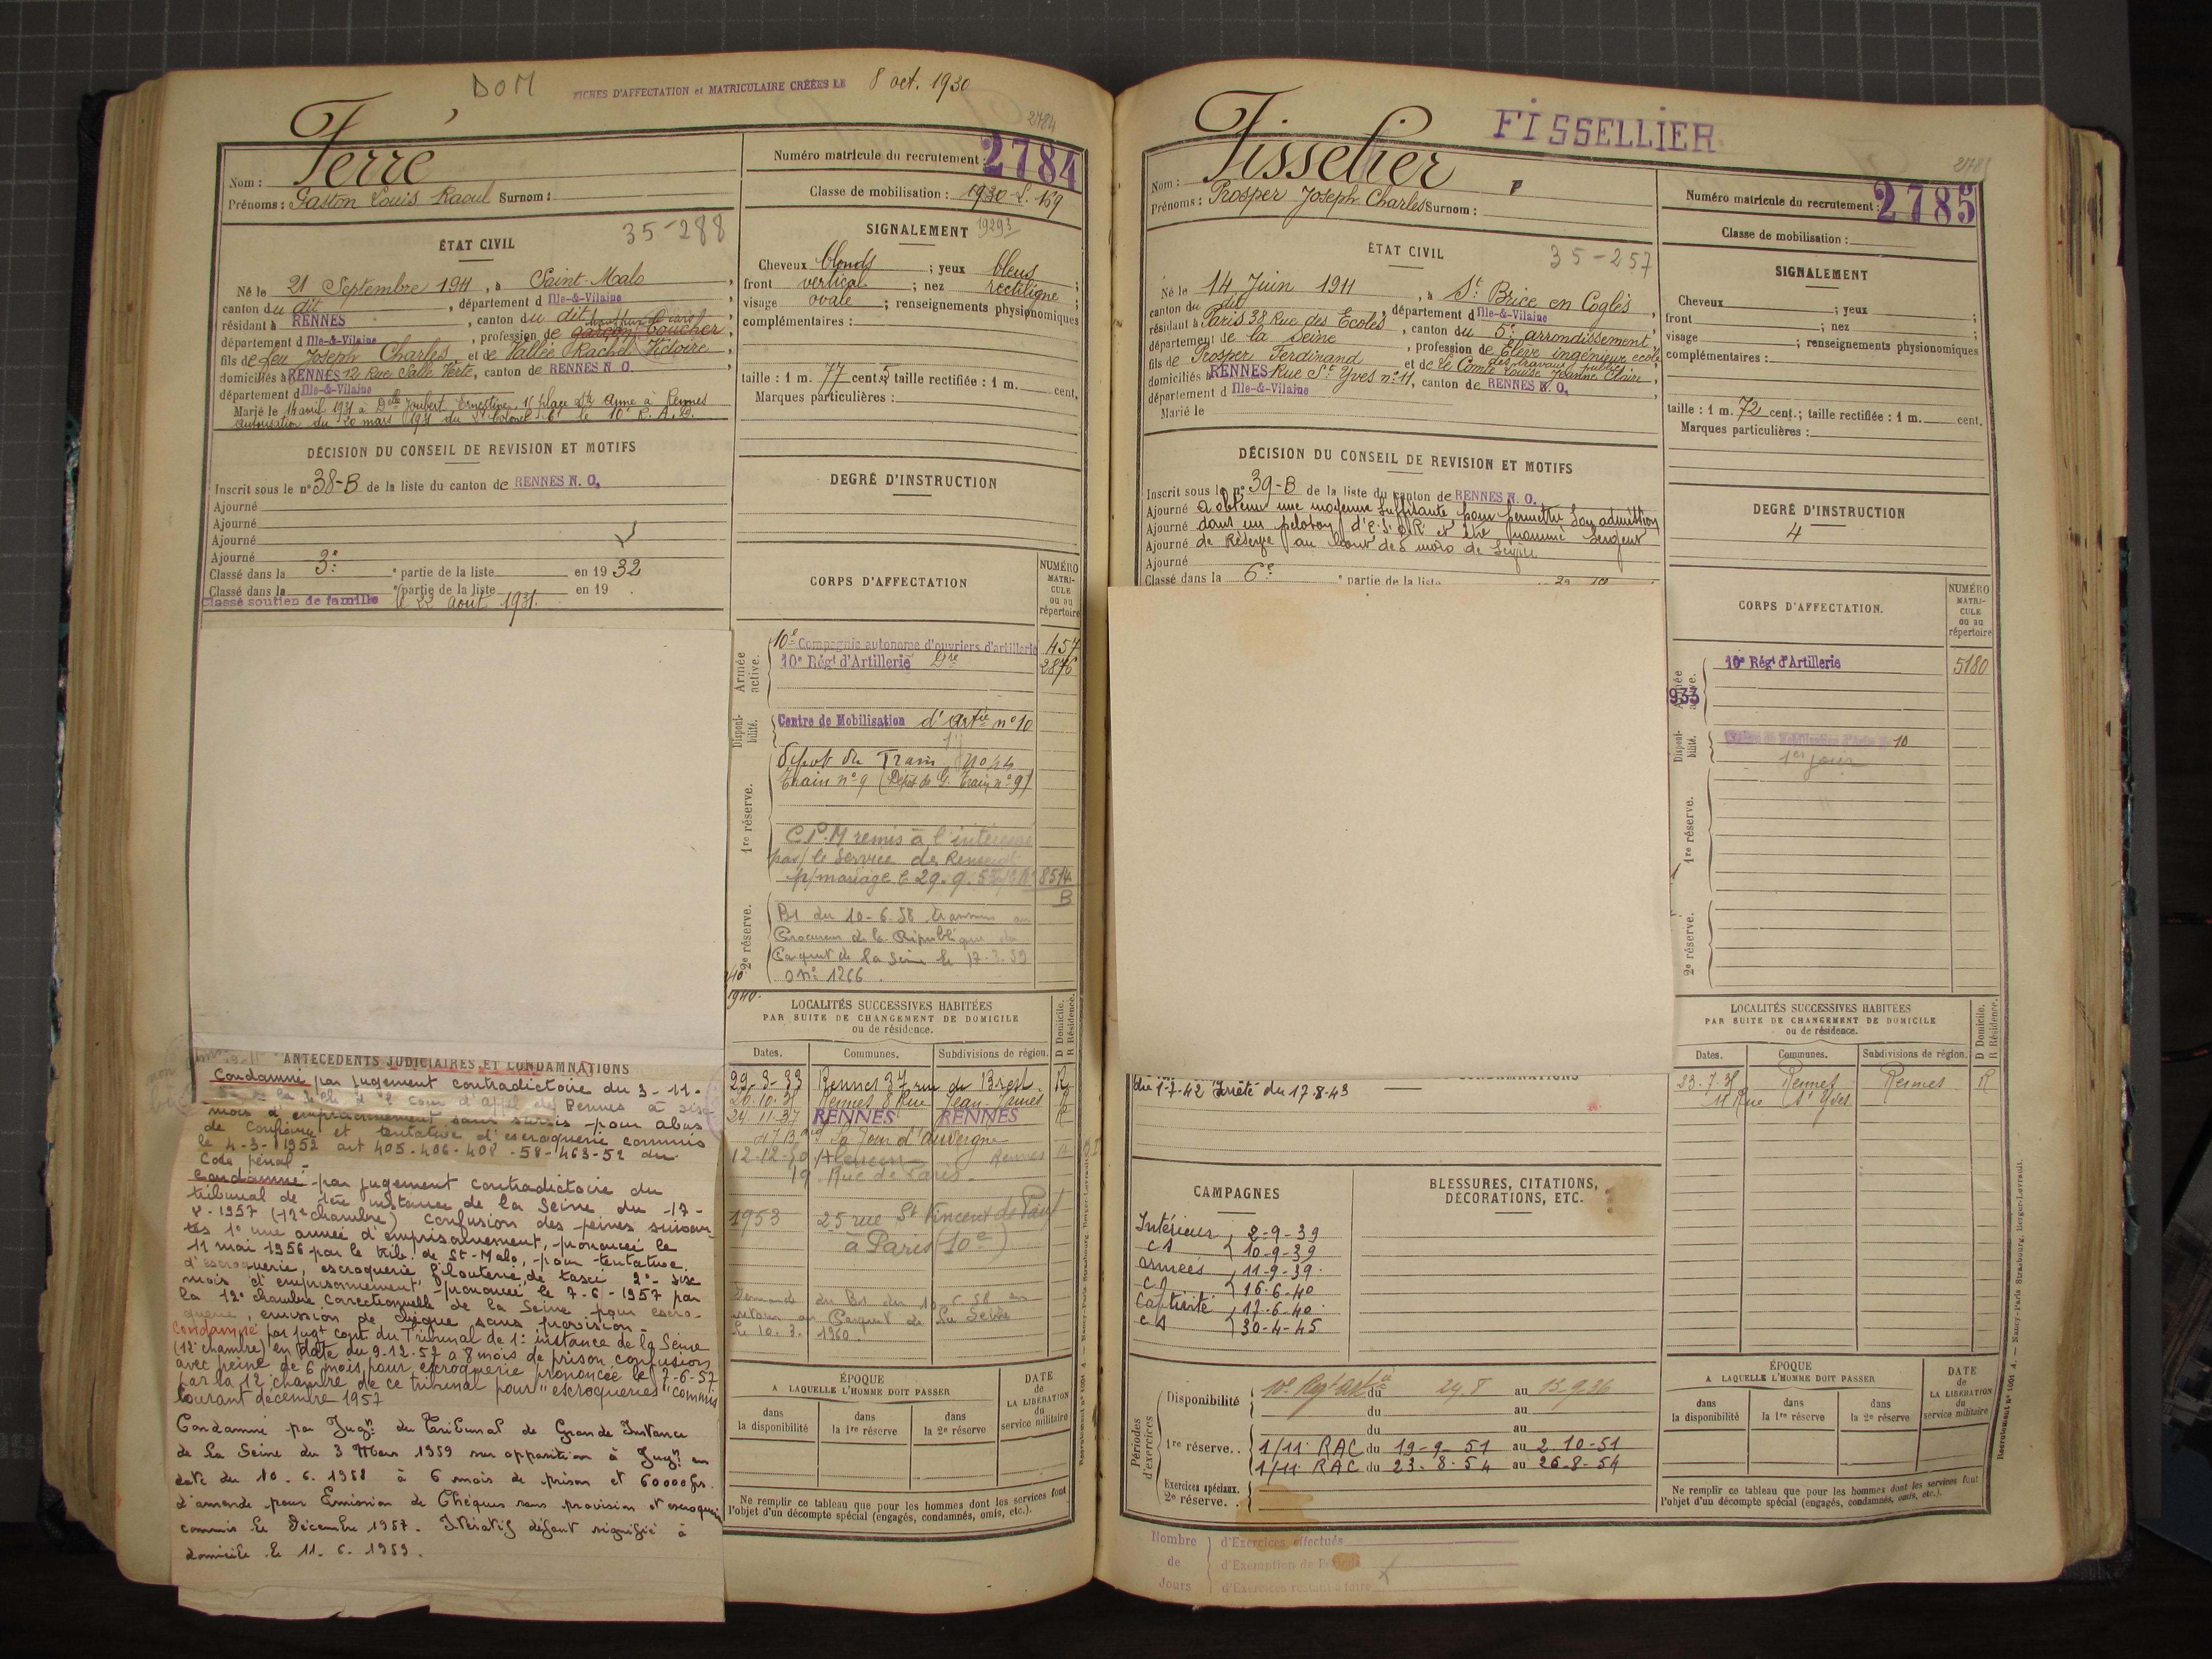 DOM
FICHES D'AFFECTATION et MATRICULAIRE CRÉÉES LE 8 oct. 1930
2784
Ferré
Nom :
Prénoms : Gaston Louis Raoul Surnom :
Numéro matricule du recrutement : 2784
Classe de mobilisation : 1930
35-288
ÉTAT CIVIL
Né le 21 Septembre 1911, à Saint-Malo,
canton du dit, département d Ille-&-Vilaine
résidant à RENNES, canton du dit,
département d Ille-&-Vilaine, profession de garçon boucher,
fils de feu Joseph Charles et de Vallée Rachel Victoire,
domiciliés à RENNES 12 Rue Salle Verte, canton de RENNES N. O.
département d Ille-&-Vilaine
Marié le 14 avril 1931 à Delle Joubert Ernestine, 11 place Ste Anne à Rennes
autorisation du 20 mars 1931 du Lt Colonel Ct le 10e R. A. D.
SIGNALEMENT
Cheveux blonds ; yeux bleus ;
front vertical ; nez rectiligne ;
visage ovale ; renseignements physionomiques
complémentaires :
taille : 1 m. 77 cent. 5 taille rectifiée : 1 m. cent.
Marques particulières :
DÉCISION DU CONSEIL DE REVISION ET MOTIFS
Inscrit sous le n° 38-B de la liste du canton de RENNES N. O.
Ajourné
Ajourné
Ajourné
Ajourné
Classé dans la 3e partie de la liste en 1932
Classé dans la partie de la liste en 19
Classé soutien de famille le 22 août 1931.
DEGRÉ D'INSTRUCTION
CORPS D'AFFECTATION
NUMÉRO MATRI-CULE ou au répertoire
Armée active.
10e Compagnie autonome d'ouvriers d'artillerie 457
10e Régt d'Artillerie Dre 2876
Disponi-bilité.
Centre de Mobilisation d'Artie n° 10
1re réserve.
Dépôt du Train n° 44
Train n° 9 (Dépôt de G. Train n° 9)
C.P.M remis à l'intéressé
par le Service de Renseigt
p/mariage le 29. 9. 8514
B
2e réserve.
B1 du 10-6-58 transmis au
Procureur de la République du
Parquet de la Seine le 17.3.59
n° 1266
1940.
LOCALITÉS SUCCESSIVES HABITÉES
PAR SUITE DE CHANGEMENT DE DOMICILE
ou de résidence.
D Domicile. R Résidence.
Dates. Communes. Subdivisions de région.
29-3-33 Rennes 37 rue de Brest. R
26.10.3 Rennes 8 Rue Jean Jaurès R
24 11-37 RENNES RENNES R
47 Bard La Tour d'Auvergne
12-12-50 Alençon Rennes
19 Rue de Paris.
1953 25 rue St Vincent de Paul
à Paris (10e)
Demande du B1 du 10.6.58 en
retour au Parquet de la Seine
le 10. 3. 1960.
ÉPOQUE
A LAQUELLE L'HOMME DOIT PASSER
DATE de LA LIBÉRATION du service militaire
dans la disponibilité dans la 1re réserve dans la 2e réserve
Ne remplir ce tableau que pour les hommes dont les services font
l'objet d'un décompte spécial (engagés, condamnés, omis, etc.).
ANTÉCÉDENTS JUDICIAIRES ET CONDAMNATIONS
Condamné par jugement contradictoire du 3-11-
cour d'appel de Rennes à six
mois d'emprisonnement sans sursis pour abus
de confiance et tentative d'escroquerie commis
le 4-3-1952 art 405-406-408-58-463-52 du
Code pénal -
Condamné par jugement contradictoire du
tribunal de 1ère instance de la Seine du -17-
-1957 (12e chambre) confusion des peines suivan-
tes 1° une année d'emprisonnement, prononcée le
11 mai 1956 par le trib. de St-Malo, pour tentative
d'escroquerie, escroquerie, filouterie de taxi 2°- six
mois d'emprisonnement, prononcé le 7-6-1957 par
la 12e chambre correctionnelle de la Seine pour escro-
querie, émission de chèque sans provision -
Condamné par jugt cont du Tribunal de 1e instance de la Seine
(12e chambre) en date du 9.12.57 à 8 mois de prison confusion
avec peine de 6 mois pour escroquerie prononcée le 7-6-57
par la 12e chambre de ce tribunal pour "escroqueries" commis
courant décembre 1957
Condamné par Jugnt du Tribunal de Grande Instance
de la Seine du 3 Mars 1959 sur opposition à Jugnt en
date du 10. 6. 1958 à 6 mois de prison et 60000 frs
d'amende pour Emission de Chèques sans provision et escroquerie
commis le Décembre 1957. Itératif défaut signifié à
domicile le 11. 6. 1959.
Fisselier
FISSELLIER
Nom :
Prénoms : Prosper Joseph Charles Surnom :
Numéro matricule du recrutement : 2785
Classe de mobilisation :
ÉTAT CIVIL
35-257
Né le 14 Juin 1911, à St Brice en Coglès,
canton du dit, département d Ille-&-Vilaine
résidant à Paris 38 Rue des Ecoles, canton du 5e arrondissement,
département de la Seine, profession de Elève ingénieur école
des travaux publics
fils de Prosper Ferdinand et de Le Comte Louise Jeanne Claire,
domiciliés à RENNES Rue St Yves n° 11, canton de RENNES N. O.
département d Ille-&-Vilaine
Marié le
SIGNALEMENT
Cheveux ; yeux ;
front ; nez ;
visage ; renseignements physionomiques
complémentaires :
taille : 1 m. 72 cent. ; taille rectifiée : 1 m. cent.
Marques particulières :
DÉCISION DU CONSEIL DE REVISION ET MOTIFS
Inscrit sous le n° 39-B de la liste du canton de RENNES N. O.
Ajourné a obtenu une moyenne suffisante pour permettre son admission
Ajourné dans un peloton d'E.O.R et être nommé Sergent
Ajourné de Réserve au bout de mois de Service
Ajourné
Classé dans la 6e partie de la liste
DEGRÉ D'INSTRUCTION
4
CORPS D'AFFECTATION.
NUMÉRO MATRI-CULE ou au répertoire
Armée active.
10e Régt d'Artillerie 5180
933
Disponi-bilité.
10
1er jour
1re réserve.
2e réserve.
du 1-7-42 Arrêté du 17-8-43
CAMPAGNES
BLESSURES, CITATIONS, DÉCORATIONS, ETC.
Intérieur 2-9-39
CS 10-9-39
armées 11-9-39
CS 16-6-40
Captivité 17-6-40
CS 30-4-45
Périodes d'exercices
Disponibilité 10e Regt Artie du 24.8 au 13.9.36
du au
du au
1re réserve. . 1/11 RAC du 19-9-51 au 2.10-51
1/11 RAC du 23.8.54 au 26-8-54
Exercices spéciaux.
2e réserve. .
Nombre de Jours
d'Exercices effectués
d'Exemption de
d'Exercices restant à faire
LOCALITÉS SUCCESSIVES HABITÉES
PAR SUITE DE CHANGEMENT DE DOMICILE
ou de résidence.
D Domicile. R Résidence.
Dates. Communes. Subdivisions de région.
23.7.3 Rennes Rennes R
11 Rue St Yves
ÉPOQUE
A LAQUELLE L'HOMME DOIT PASSER
DATE de LA LIBÉRATION du service militaire
dans la disponibilité dans la 1re réserve dans la 2e réserve
Ne remplir ce tableau que pour les hommes dont les services font
l'objet d'un décompte spécial (engagés, condamnés, omis, etc.).
Recrutement n° 1051 A. — Nancy-Paris-Strasbourg. Berger-Levrault.